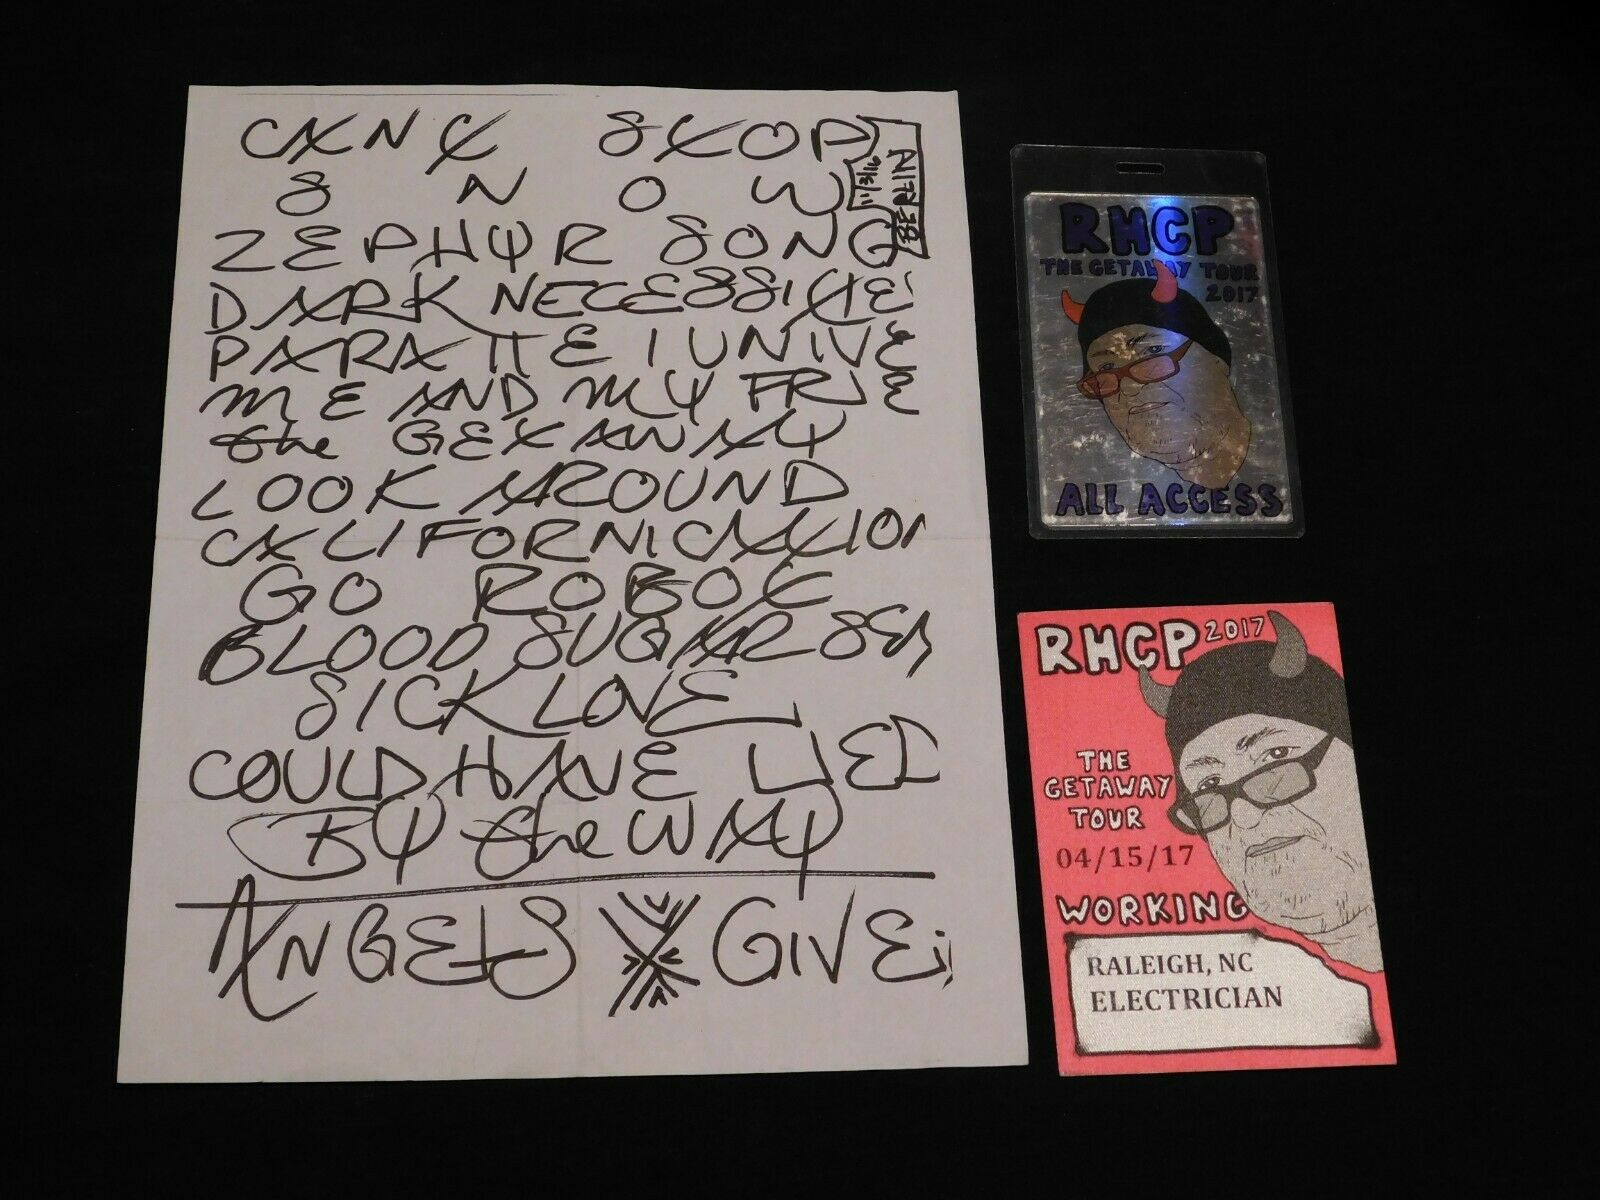 CAN'T STOP
11/3/16
BERLIN
SNOW
ZEPHYR SONG
DARK NECESSITIE
PARALLEL UNIVE
ME AND MY FRIE
the GETAWAY
LOOK AROUND
CALIFORNICATION
GO ROBOT
BLOOD SUGAR SEX
SICK LOVE
COULD HAVE LIED
BY the WAY
ANGELS GIVE
RHCP
THE GETAWAY TOUR
2017
ALL ACCESS
RHCP 2017
THE
GETAWAY
TOUR
04/15/17
WORKING
RALEIGH, NC
ELECTRICIAN